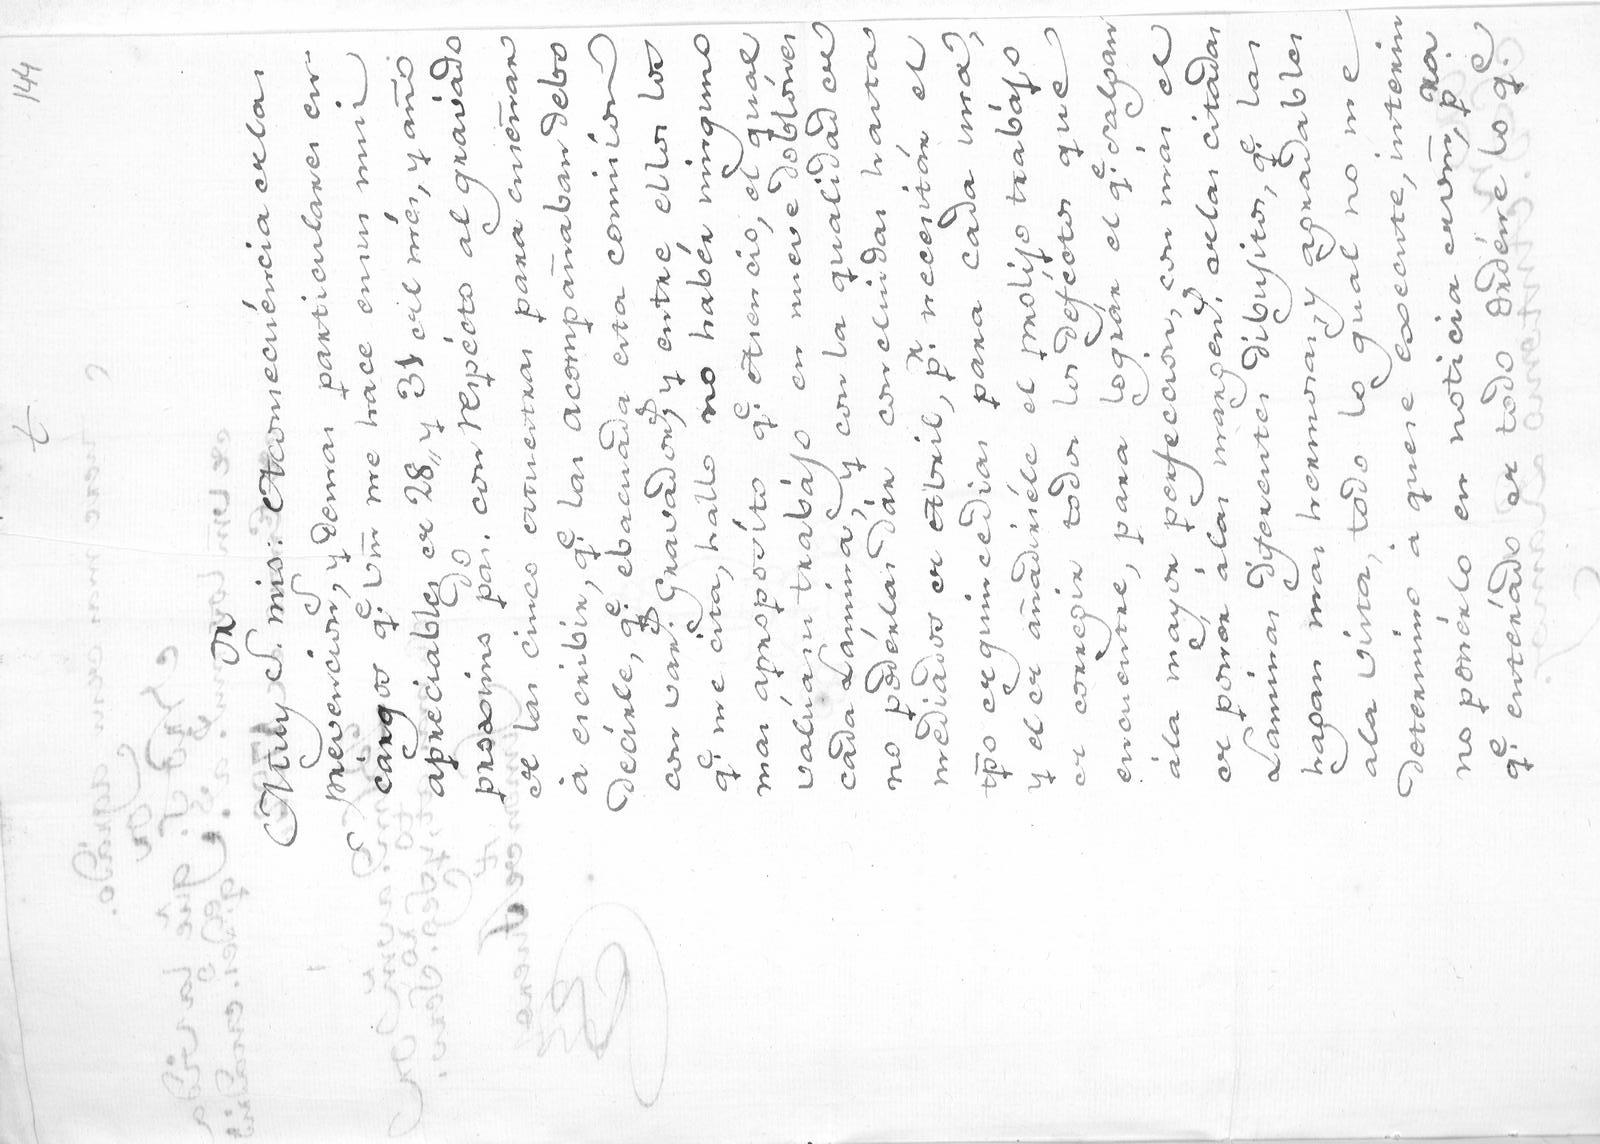 144
t
Muy Sr. mio: A consecuéncia de las
prevencion.s, y demas particulares en-
cárgos q.e vm̃ me hace en sus mui
apreciables de 28,, y 31 del més, y año
proxímo pas.do con respécto al gravádo
de las cinco muestras para enseñar
à escribír, q.e las acompañaban debo
decírle, q.e ebacuáda esta comisión
con var.s Gravador.s, y entre ellos los
q.e me cita, hallo no habér ninguno
mas apropósito q.e Asencio, el quál
valúa su trabájo en nueve doblónes
cáda Lámina, y con la qualidad de
no podérlas dár concluidas hasta
mediados de Abril, p.r necesitár el
tp̃o de quince dias para cada una,
y el de añadirséle el prolíjo trabájo
de corregir todos los deféctos que
encuentre, para lográr el q.e salgan
à la mayor perfección, con mas el
de ponér à las margen.s de las citadas
Laminas diferentes dibujitos, q.e las
hagan mas hermosas, y agradables
à la vista, todo lo qual no me
determino à que se execute, interin
no ponérlo en noticia de vm̃, p.ra
q.e enterádo de todo ordéne lo q.e